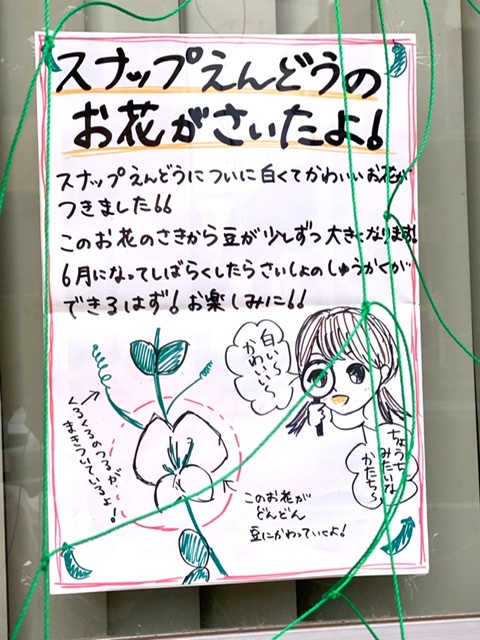 スナップえんどうの
お花がさいたよ!
スナップえんどうについに白くてかわいいお花が
つきました!!
このお花のさきから豆が少しずつ大きくなります!
6月になってしばらくしたらさいしょのしゅうかくが
できるはず!お楽しみに!!
白い〜
かわいい〜
ちょうちょ
みたいな
かたち〜
くるくるのつるが
まきついているよ!
このお花が
どんどん
豆にかわっていくよ!